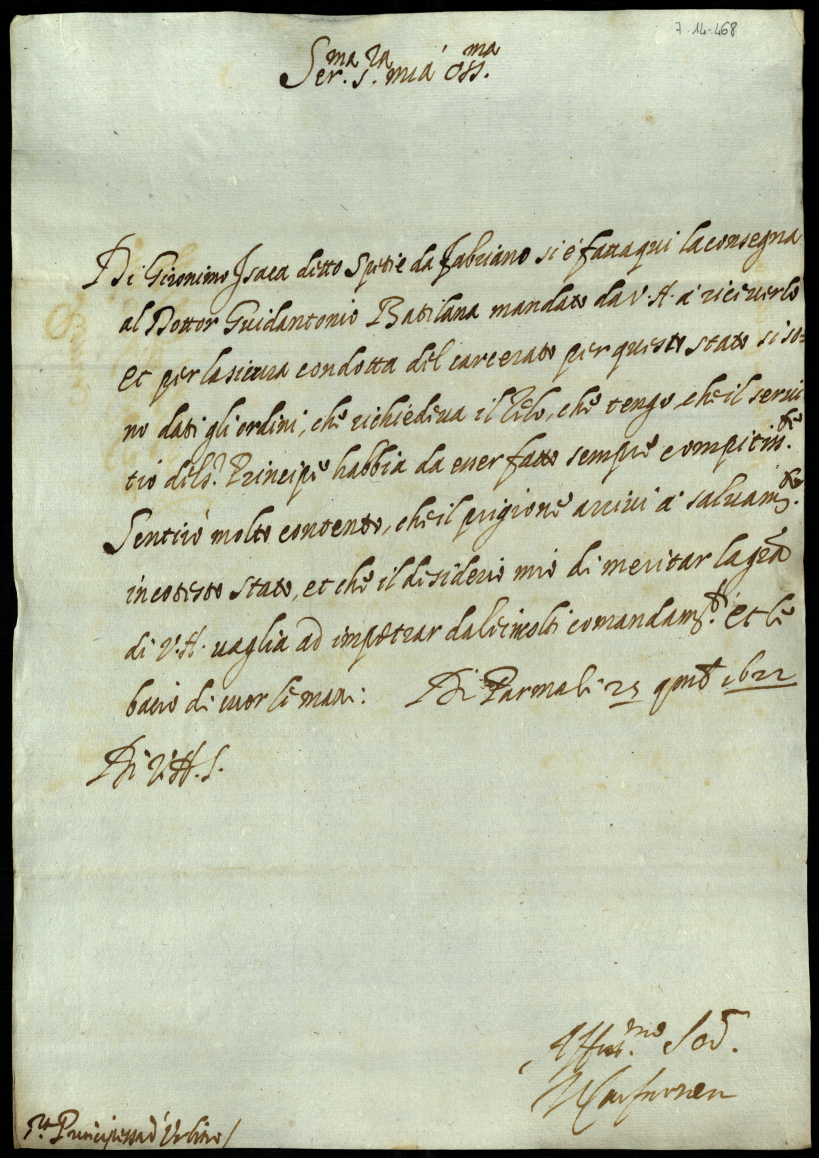 7-14-468
Ser.ma S.ra mia oss.ma
Di Gironimo Isaea detto Spetie da Fabriano si è fatta qui la consegna
al Dottor Guidantonio Batilana mandato da V. A. à riceverlo
et per la sicura condotta del carcerato per questo stato si so=
no dati gli ordini, che richiedeva il zelo, che tengo, che il servi
tio del S.r Principe habbia da esser fatto sempre compitim.te
Sentirò molto contento, che il prigione arrivi à salvam.to
in cotesto stato, et che il desiderio mio di meritar la gra
di V. A. vaglia ad impetrar da lei molti comandam.ti Et le
bacio di cuor le mani: Di Parma li 25 1622
Di V. A. S.
Aff.mo Ser.
S.ra Principessa d'Urbino /